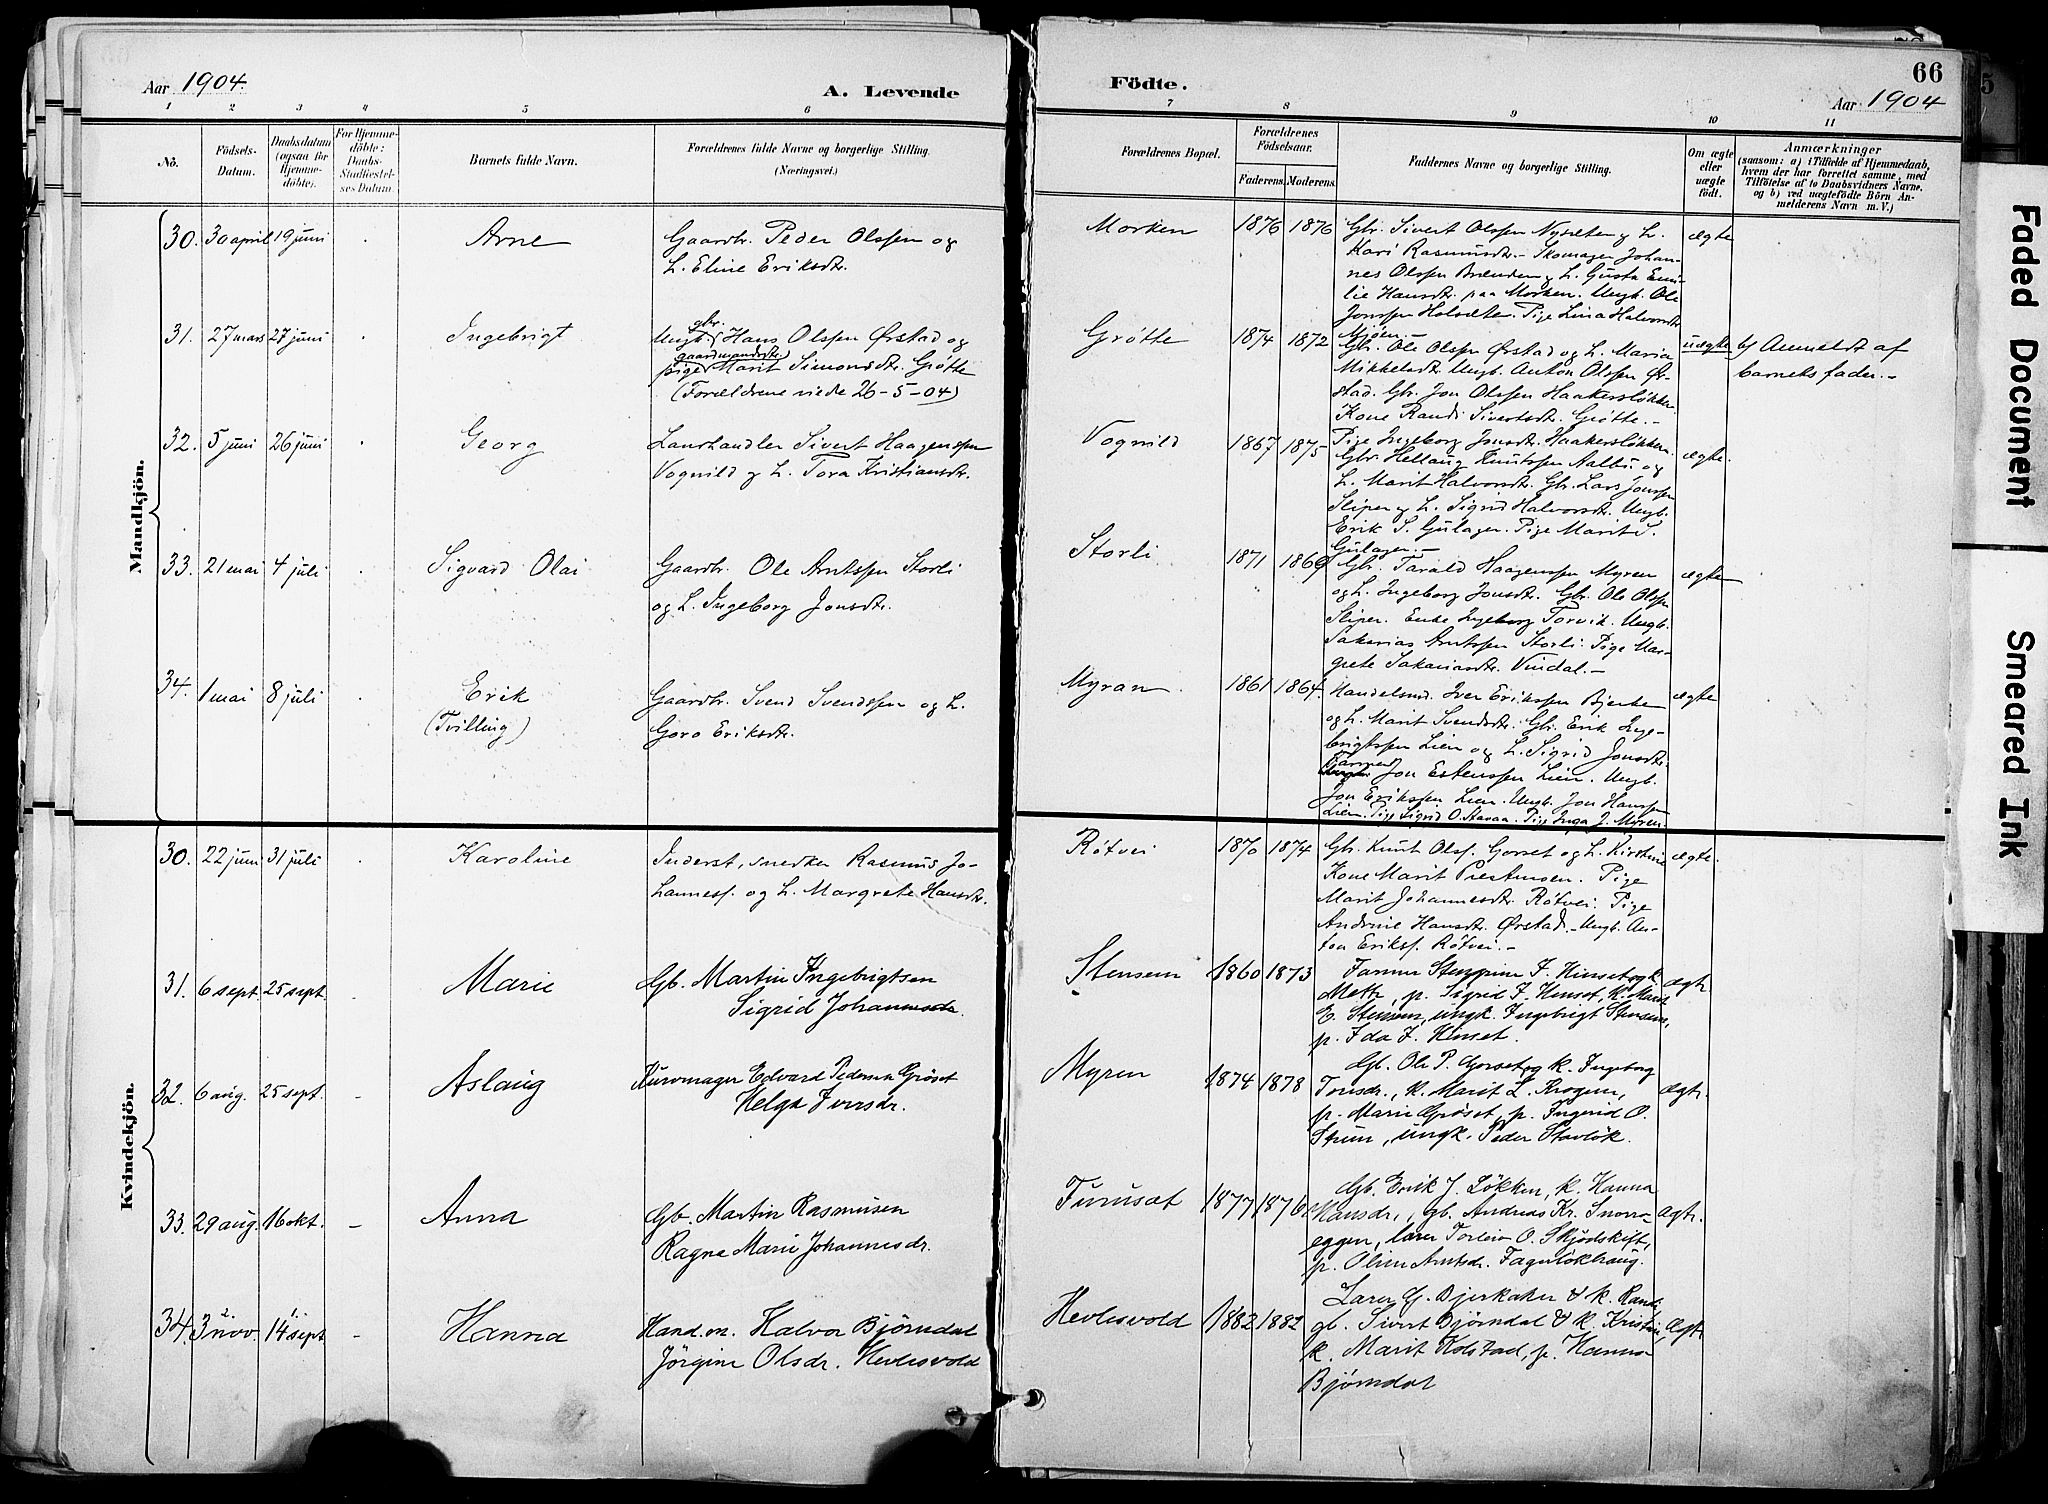 66
Aar 1904.
A. Levende
Födte.
Aar 1904
1 2 3 4 5 6 7 8 9 10 11
No.
Födsels-Datum.
Daabsdatum (ogsaa for Hjemme-döbte).
For Hjemme-döbte: Daabs-Stadfæstel-ses Datum.
Barnets fulde Navn.
Forældrenes fulde Navne og borgerlige Stilling. (Næringsvei.)
Forældrenes Bopæl.
Forældrenes Födselsaar.
Faderens. Moderens.
Faddernes Navne og borgerlige Stilling.
Om ægte eller uægte födt.
Anmærkninger
(saasom: a) i Tilfælde af Hjemmedaab,
hvem der har forrettet samme, med
Tilföielse af to Daabsvidners Navne,
og b) ved uægtefödte Börn An-
melderens Navn m. V.)
Mandkjön.
30. 30 april 19 juni Arne
Gaardbr. Peder Olssen og
h. Eline Eriksdtr.
Morken 1876 1876
Gbr. Sivert Olssen Nysæter og h.
Kari Rasmusdtr. Skomager Johan-
nes Olssen Brenden og h. Gusta Emi-
lie Hansdtr. paa Morken. Ungk. Ole
Jonssen Holsæter. Pige Lina Halvorsdtr.
Mjøen.-
ægte
31. 27 mars 27 juni Ingebrigt
gbr.
Ungk. Hans Olssen Ørstad og
gaardmandsdtr.
pige Marit Simonsdtr. Grøtte
(Forældrene viede 26-5-04)
Grøtte 1874 1872
Gbr. Ole Olssen Ørstad og h. Maria
Mikkelsdtr. Ungk. Anton Olssen Ør-
stad. Gbr. Jon Olssen Haakersløkken
Kone Randi Sivertsdtr. Grøtte.-
Pige Ingeborg Jonsdtr. Haakersløkken.
uægte b) Anmeldt af
barnets fader.-
32. 5 juni 26 juni Georg
Landhandler Sivert Haagenssen
Vognild og h. Tora Kristiansdtr.
Vognild 1867 1875
Gbr. Hellaug Knutssen Aalbu og
h. Marit Halvorsdtr. Gbr. Lars Jonssen
Sliper og h. Sigrid Halvorsdtr. Ungk.
Erik S. Gulager. Pige Marit S.
Gulager.-
ægte.
33. 21 mai 4 juli Sigvard Olai
Gaardbr. Ole Arntssen Storli
og h. Ingeborg Jonsdtr.
Storli 1871 1869
Gbr. Tarald Haagenssen Myren
og h. Ingeborg Jonsdtr. Gbr. Ole Olssen
Sliper. Enke Ingeborg Torvik. Ungk.
Sakarias Arntssen Storli. Pige Mar-
grete Sakariasdtr. Vindal.-
ægte
34. 1 mai 8 juli Erik
(Tvilling)
Gaardbr. Svend Svendssen og h.
Goro Eriksdtr.
Myran 1861 1864.
Handelsmd. Iver Erikssen Bjerke
og h. Marit Svendsdtr. Gbr. Erik Inge-
brigtssen Lien og h. Sigrid Jonsdtr.
Jon Estenssen Lien. Ungk.
Jon Erikssen Lien. Ungk. Jon Hanssen
Lien. Pige Sigrid O. Havaa. Pige Inga J. Myren.
ægte
Kvindekjön.
30. 22 juni 31 juli Karoline
Inderst, snedker Rasmus Jo-
hannesf. og h. Margrete Hansdtr.
Røtvei 1870 1874
Gbr. Knut Olsf. Gorset og h. Kirstine
Kone Marit Prestmoen. Pige
Marit Johannesdtr. Røtvei. Pige
Andrine Hansdtr. Ørstad.- Ungk. An-
ton Eriksf. Røtvei.-
ægte.
31. 6 sept. 25 sept. Marie
Gb. Martin Ingebrigtsen
Sigrid Johannesdr.
Stensem 1860 1873
F. Hinset og k.
Mette, p. Sigrid F. Hinset, k. Marit
E. Stensem, ungk. Ingebrigt Stensem,
p. Ida F. Hinset.
ægte.
32. 6 aug. 25 sept. – Aslaug
Kurvmager Edvard Pedersen Grøset
Helga Iversdr.
Myren 1874 1878
Gb. Ole P. Gorset og k. Ingeborg
Tomsdr., k. Marit L. Krogen,
p. Marie Grøset, p. Ingerid O.
Stuen, ungk. Peder Stavløk.
ægte.
33. 29 aug. 16 okt. – Anna
Gb. Martin Rasmusen
Ragne Marie Johannesdr.
Furusæt 1877 1876
Gb. Erik J. Løkken, k. Hanna
Hansdr., gb. Andreas Kr. Snove-
eggen, lærer Torleiv O. Skjødskift,
p. Oline Arntsdr. Fagerløkhaug.
Ægte.
34. 3 nov. 14 sept – Hanna
2. 1.
Hand.m. Halvor Bjørndal
Jørgine Olsdr. Hevlesvold
Hevlesvold 1882 1882
Lærer G. Bjerkaker & k. Randi
gb. Sivert Bjørndal & k. Kristine,
k. Marit Kolstad, p. Hanna
Bjørndal
Ægte.
Faded Document
Smeared Ink